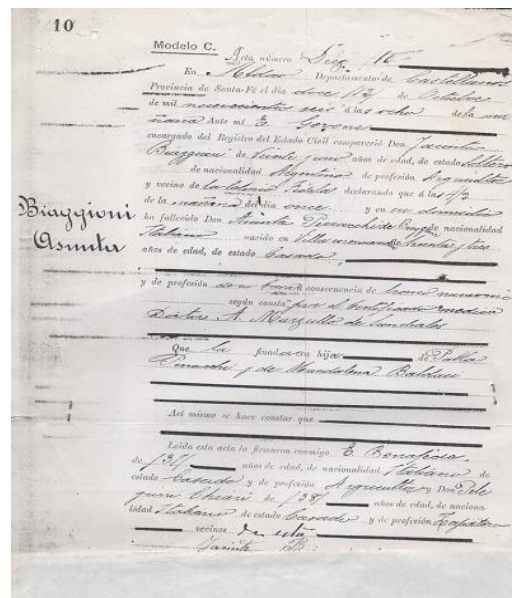 10
Modelo C.
Acta número Diez 10
En Departamento de Castellanos
Provincia de Santa-Fé el día doce /12/ de Octubre
de mil novecientos seis á las ocho de la ma
ñana Ante mi E.
encargado del Registro del Estado Civil compareció Don Jacinto
Biaggioni de Veinte y un años de edad, de estado soltero
de nacionalidad Argentino de profesión Agricultor
y vecino de la Colonia Fidela declarando que á las 4/2
de la mañana del día once y en su domicilio
ha fallecido Don de nacionalidad
Italiana nacido en Villa de treinta y tres
años de edad, de estado Casada,
y de profesión consecuencia de bronco neumonia
según consta por el certificado medico
Doctor A. de Sunchales
Que la finada era hija de Pablo
y de Magdalena
Biaggioni
Asunta
Así mismo se hace constar que
Leída esta acta la firmaron conmigo E.
de /34/ años de edad, de nacionalidad Italiano de
estado Casado y de profesión Agricultor y Don Pele
grin de /38/ años de edad, de naciona-
lidad Italiano de estado Casado y de profesión Zapatero
vecinos de esta
Jacinto B.